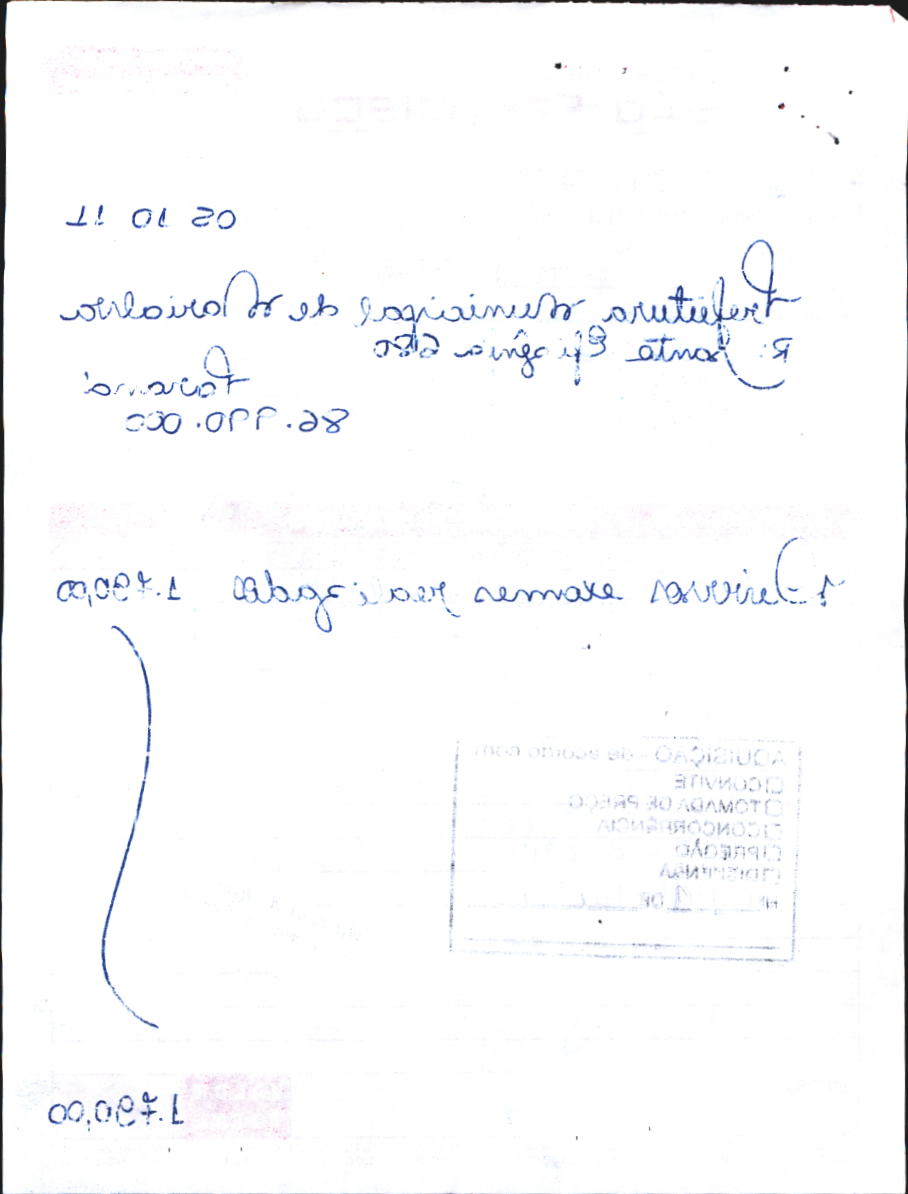 05 10 11
Prefeitura Municipal de Marialva
R: Santa Efigênia 680
Paraná
86.990.000
1 Diversos exames realizados 1.790,00
AQUISIÇÃO - de acordo com
☐ CONVITE
☐ TOMADA DE PREÇO
☐ CONCORRÊNCIA
☐ PREGÃO
☐ DISPENSA
1.790,00